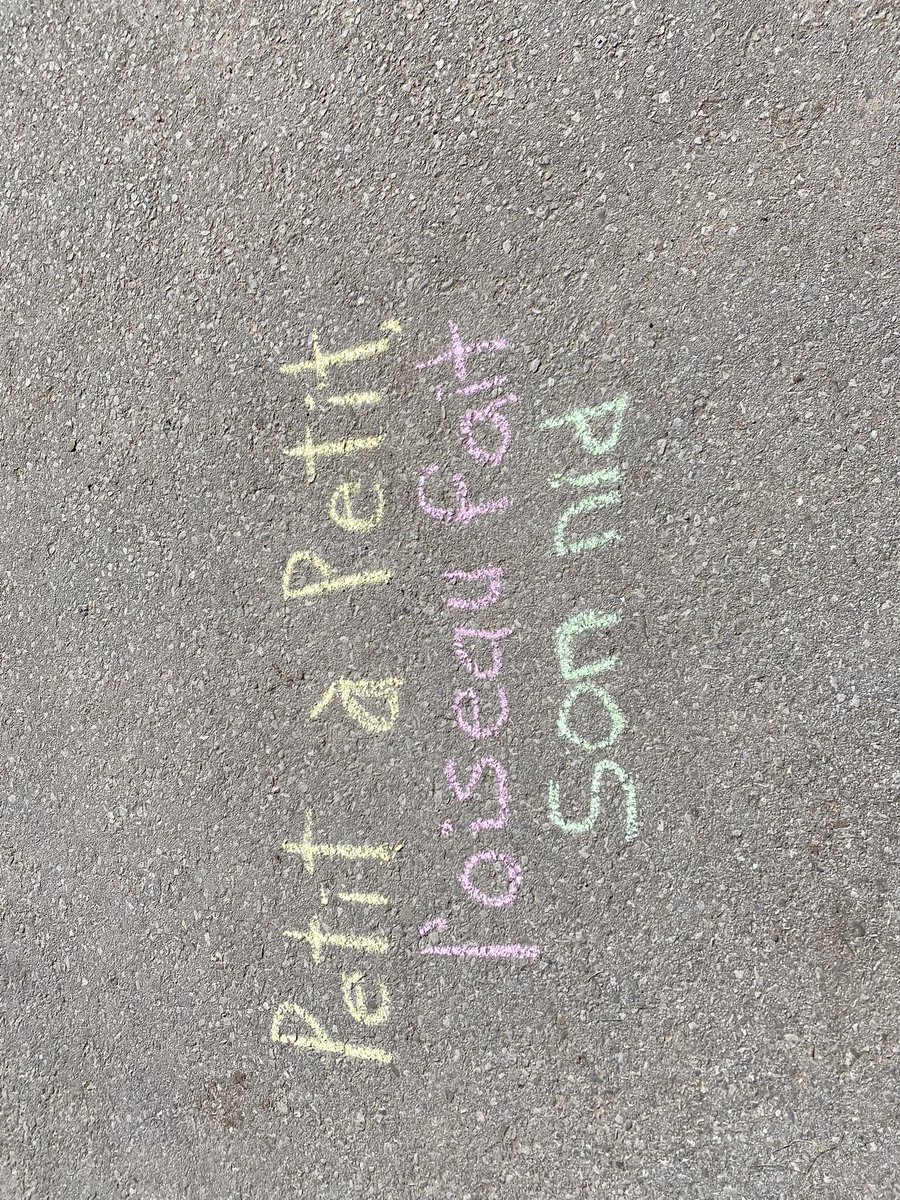 Petit à Petit,
l'oiseau fait
son nid